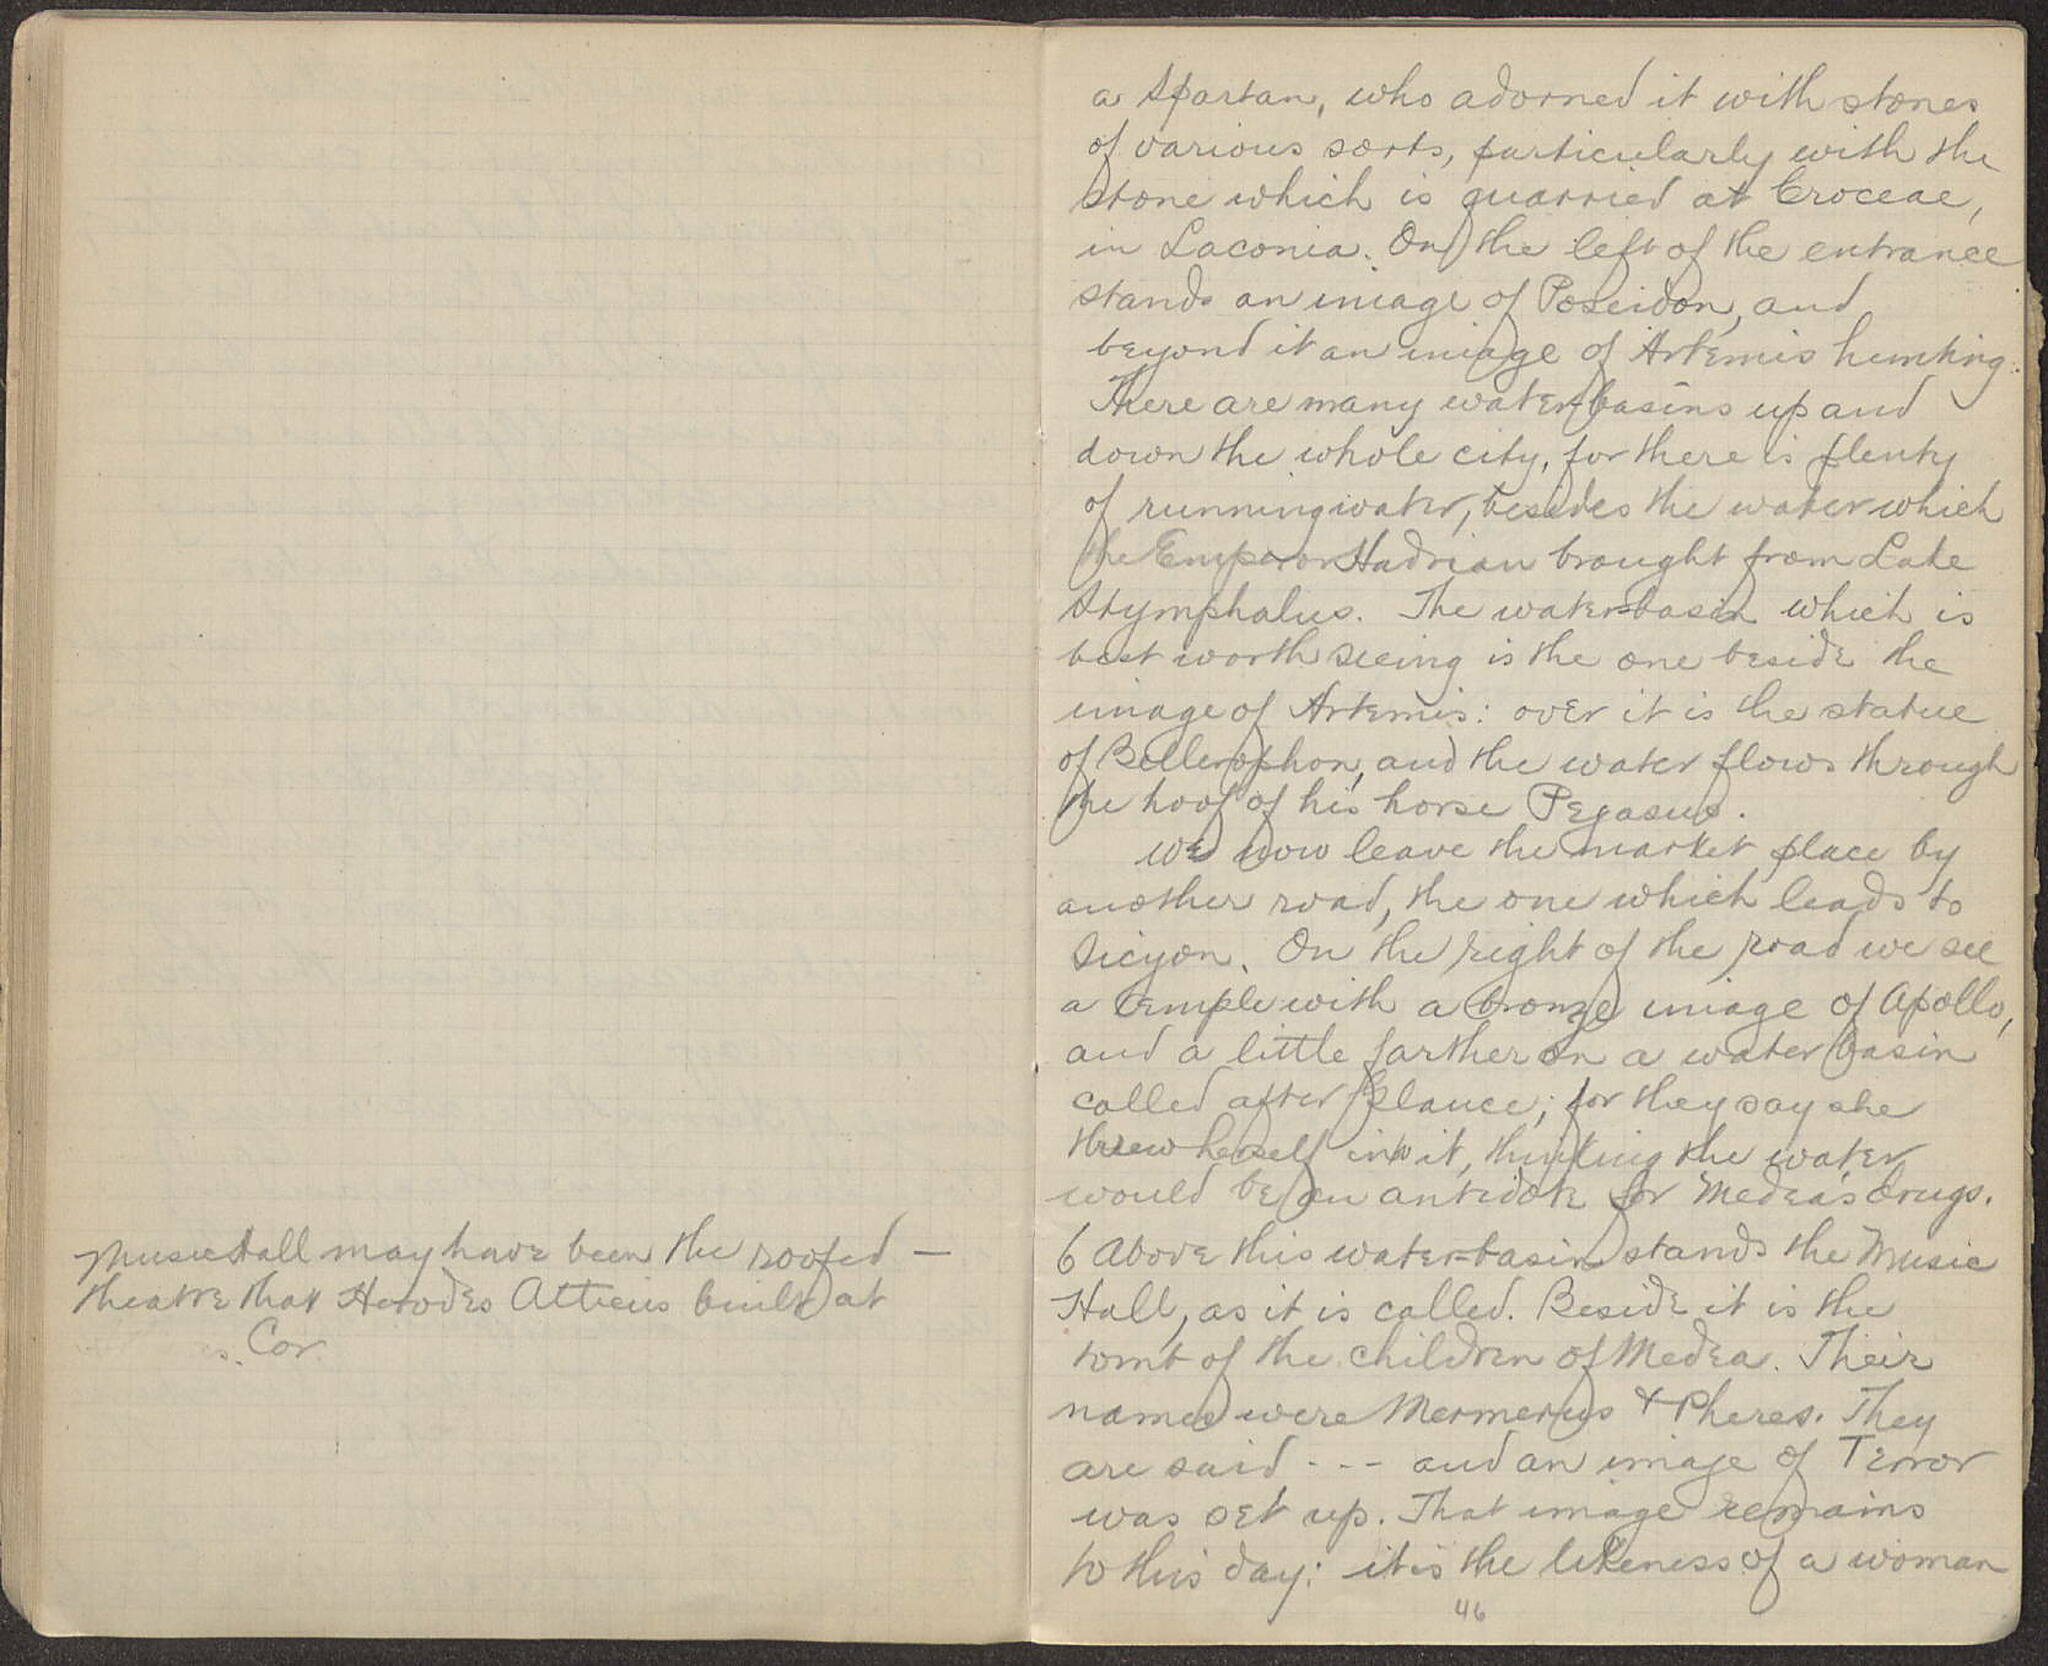 Music Hall may have been the roofed —
theatre that Herodes Atticus built at
s. Cor
a Spartan, who adorned it with stones
of various sorts, particularly with the
stone which is quarried at Croceae,
in Laconia. On the left of the entrance
stands an image of Poseidon, and
beyond it an image of Artemis hunting.
There are many water-basins up and
down the whole city, for there is plenty
of running water, besides the water which
the Emperor Hadrian brought from Lake
Stymphalus. The water-basin which is
best worth seeing is the one beside the
image of Artemis: over it is the statue
of Bellerophon, and the water flows through
the hoof of his horse Pegasus.
We now leave the market place by
another road, the one which leads to
Sicyon. On the right of the road we see
a temple with a bronze image of Apollo,
and a little farther on a water basin
called after Glauce; for they say she
threw herself into it, thinking the water
would be an antidote for Medea's drugs.
6 Above this water-basin stands the Music
Hall, as it is called. Beside it is the
tomb of the children of Medea. Their
names were Mermerus & Pheres. They
are said --- and an image of Terror
was set up. That image remains
to this day: it is the likeness of a woman
46